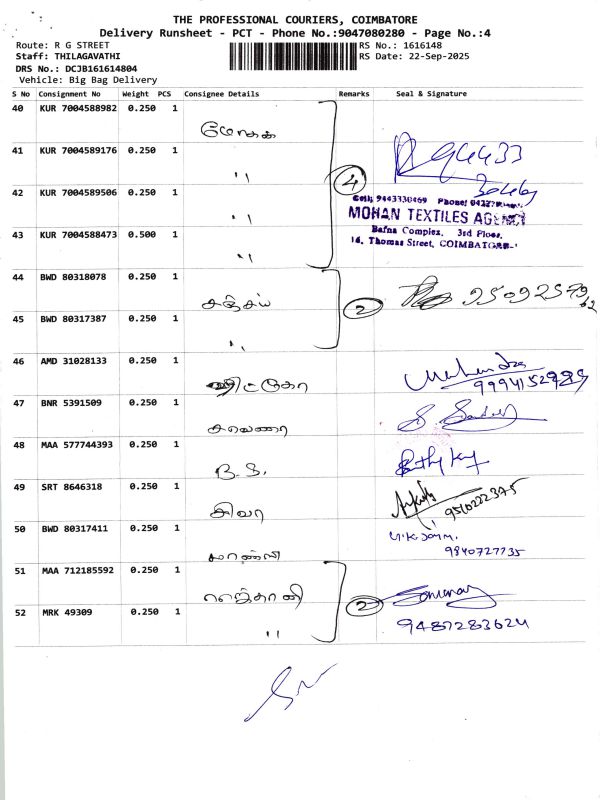 THE PROFESSIONAL COURIERS, COIMBATORE
Delivery Runsheet - PCT - Phone No.:9047080280 - Page No.:4
Route: R G STREET
RS No.: 1616148
Staff: THILAGAVATHI
RS Date: 22-Sep-2025
DRS No.: DCJB161614804
Vehicle: Big Bag Delivery
S No Consignment No Weight PCS Consignee Details Remarks Seal & Signature
40 KUR 7004588982 0.250 1
41 KUR 7004589176 0.250 1
" 4 94433
42 KUR 7004589506 0.250 1
30469
Cell: 9443330469 Phone: 
" MOHAN TEXTILES AGENCY
43 KUR 7004588473 0.500 1
Bafna Complex, 3rd Floor,
" 16, Thomas Street, COIMBATORE-1
44 BWD 80318078 0.250 1
சஞ்சய் 2
45 BWD 80317387 0.250 1
"
46 AMD 31028133 0.250 1
Mahendra
47 BNR 5391509 0.250 1
48 MAA 577744393 0.250 1
B.S.
49 SRT 8646318 0.250 1
சிவா 9510222375
50 BWD 80317411 0.250 1
9840727735
51 MAA 712185592 0.250 1
2
52 MRK 49309 0.250 1
" 9487283624